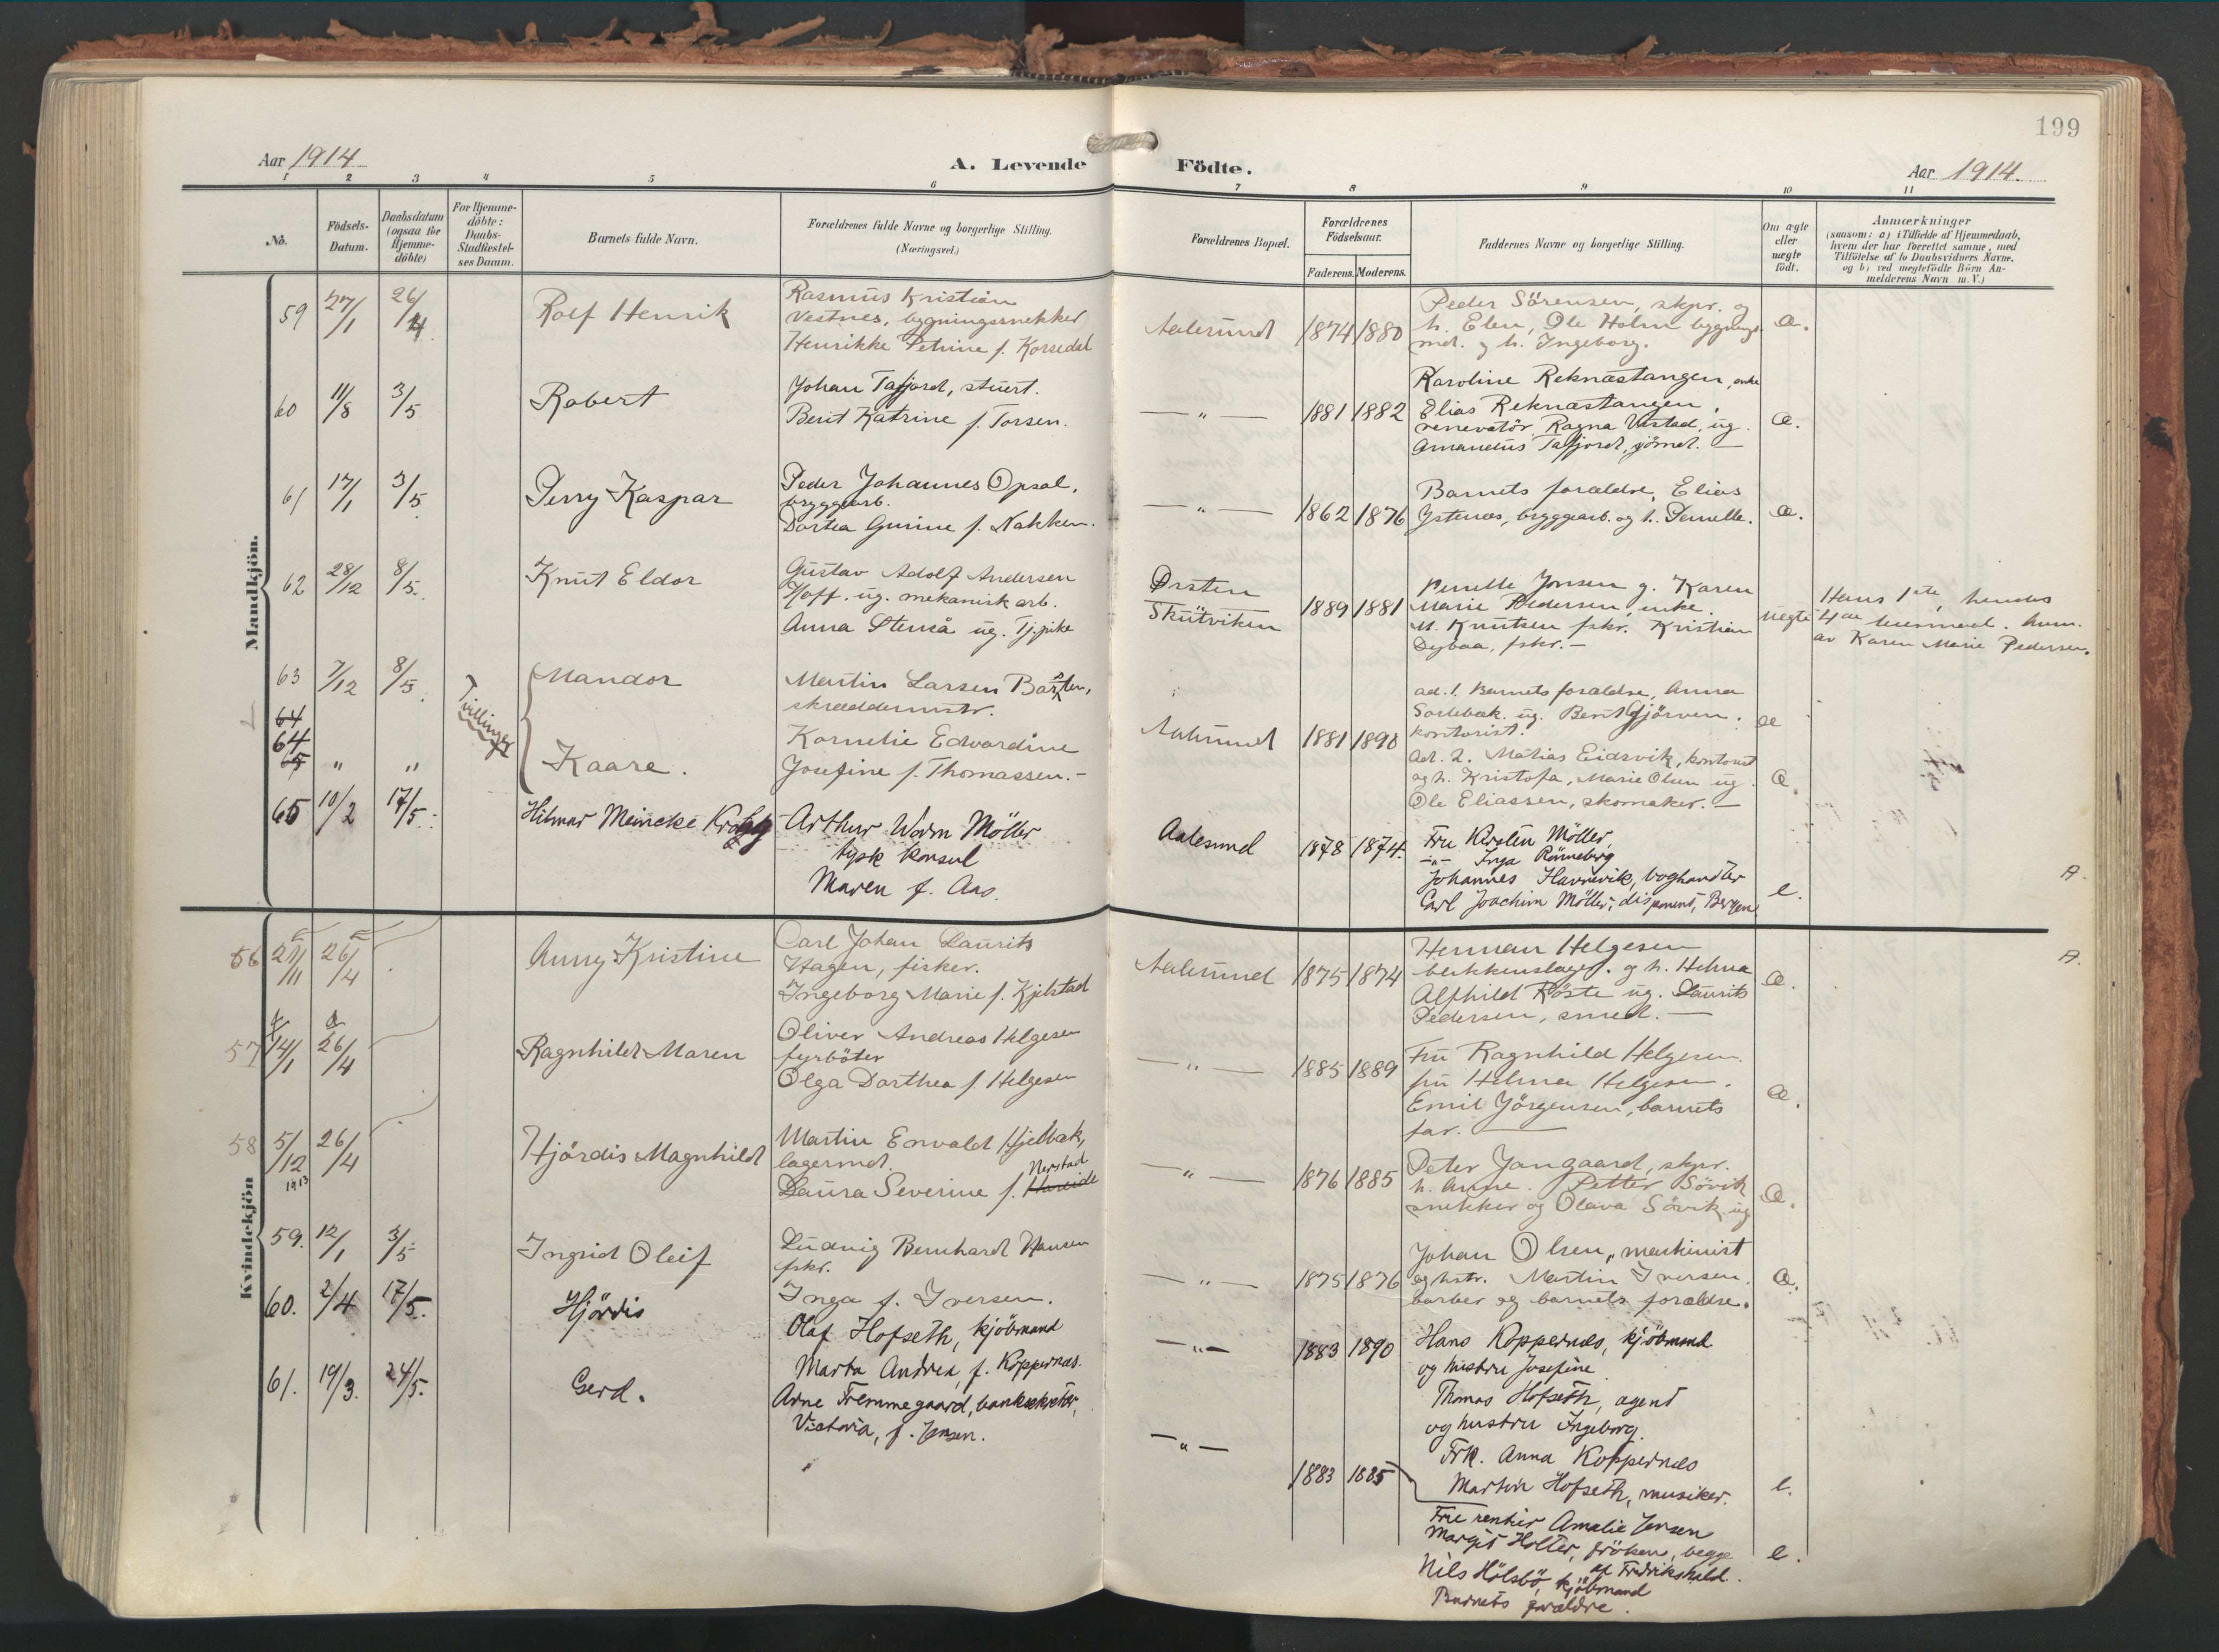 199
Aar 1914.
A. Levende Födte.
Aar 1914.
1 2 3 4 5 6 7 8 9 10 11
No.
Födsels-Datum.
Daabsdatum (ogsaa for Hjemme-döbte)
For Hjemme-döbte: Daabs-Stadfæstel-ses Datum.
Barnets fulde Navn.
Forældrenes fulde Navne og borgerlige Stilling. (Næringsvei.)
Forældrenes Bopæl.
Forældrenes Födselsaar.
Faderens. Moderens.
Faddernes Navne og borgerlige Stilling.
Om ægte eller uægte födt.
Anmærkninger
(saasom: a) i Tilfælde af Hjemmedaab, hvem der har forrettet samme, med Tilföielse af to Daabsvidners Navne. og b) ved uægtefödte Börn An-melderens Navn m. V.)
Mandkjön.
59 27/1 26/4 Rolf Henrik
Rasmus Kristian
Vestnes, bygningssnekker
Henrikke Petrine f. Korsedal
Aalesund 1874 1880
Peder Sörensen, skpr. og
h. Elen, Ole Holm bygnings
md. og h. Ingeborg.
æ.
60 11/8 3/5 Robert
Johan Tafjord, stuert.
Berit Katrine f. Torsen.
— " — 1881 1882
Karoline Reknæstangen, enke
Elias Reknæstangen,
renevatör, Ragna Vestad, ug.
Amandus Tafjord, gårmd. —
æ.
61 17/1 3/5 Perry Kaspar
Peder Johannes Opsal,
bryggearb.
Dortea Gurine f. Nakken.
— " — 1862 1876
Barnets forældre, Elias
Ystenes, bryggearb. og h. Pernelle.
æ.
62 28/12 8/5. Knut Eldor
Gustav Adolf Andersen
Hoff. ug. mekanisk arb.
Anna Stenså ug. Tj.pike
Ørsten
Skutviken
1889 1881
Pernille Jonsen g. Karen
Marie Pedersen, enke.
M. Knutsen fskr. Kristian
Dybaa, fskr. —
uegte
Hans 1ste, hendes
4de
av Karen Marie Pedersen.
63 7/12 8/5. Tvillinger Mandor
Martin Larsen
skræddermstr.
64
64
65 " " Kaare.
Kornelie Edvardine
Josefine f. Thomassen. —
Aalesund 1881 1890
ad. 1. Barnets forældre, Anna
ug. Berit Gjörven.
kontorist.
æ
ad. 2. Matias Eidsvik, kontorist
og h. Kristofa, Marie Olsen ug.
Ole Eliassen, skomaker. —
æ.
65 10/2 17/5. Hilmar Meincke Krohg
Arthur Worm Möller
tysk konsul
Maren f. Aas.
Aalesund 1878 1874.
Fru Kirsten Möller,
— " — Inga Rönneberg
Johannes Havnevik, boghandler
Carl Joachim Möller, disponent, Bergen
e.
A.
Kvindekjön
56 21/11 26/4 Anny Kristine
Carl Johan Laurits
Hagen, fisker.
Ingeborg Marie f. Kjelstad
Aalesund 1875 1874
Herman Helgesen
blikkenslager. og h. Helma
Alfhild Röste ug. Laurits
Pedersen, smed. —
æ.
A.
57 14/1 26/4 Ragnhild Maren
Oliver Andreas Helgesen
fyrböter
Olga Dorthea f. Helgesen
— " — 1885 1889
Fru Ragnhild Helgesen.
fru Helma Helgesen.
Emil Jörgensen, barnets
far. —
æ.
58 5/12 1913 26/4 Hjördis Magnhild
Martin Envald Hjelbak,
lagermd.
Nerstad
Laura Severine f. Hareide
— " — 1876 1885
Peter Jangaard, skpr.
h. Anne. Petter Sövik
snekker og Olava Sövik ug
æ.
59. 12/1 3/5 Ingrid Oleif
Ludvig Bernhard Hansen
fskr.
Inga f. Iversen.
— " — 1875 1876
Johan Olsen, maskinist
og hstr. Martin Iversen.
barber og barnets forældre.
æ.
60. 2/4 17/5. Hjördis
Olaf Hofseth, kjöbmand
Marta Andrea, f. Koppernæs.
— " — 1883 1890
Hans Koppernæs, kjöbmand
og hustru Josefine
Thomas Hofseth, agent
og hustru Ingeborg.
Frk. Anna Koppernæs
Martin Hofseth, musiker.
e.
61. 19/3. 24/5. Gerd.
Arne Fremmegaard, banksekretær,
Victoria, f. Jensen.
— " — 1883 1885
Frue rentier Amalie Jensen
Margit Holter, fröken, begge
af Fredrikshald.
Nils Hölsbö, kjöbmand
Barnets forældre.
e.